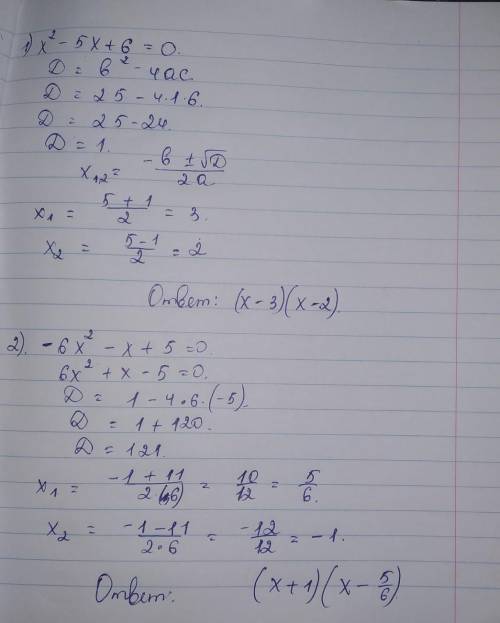 1) x² - 5x + 6 = 0.
D = b² - 4ac.
D = 25 - 4·1·6.
D = 25 - 24.
D = 1.
x₁,₂ = (-b ± √D)/(2a)
x₁ = (5 + 1)/2 = 3.
x₂ = (5 - 1)/2 = 2
Ответ: (x - 3)(x - 2).
2). -6x² - x + 5 = 0.
6x² + x - 5 = 0.
D = 1 - 4·6·(-5).
D = 1 + 120.
D = 121.
x₁ = (-1 + 11)/(2·6) = 10/12 = 5/6.
x₂ = (-1 - 11)/(2·6) = -12/12 = -1.
Ответ: (x + 1)(x - 5/6)